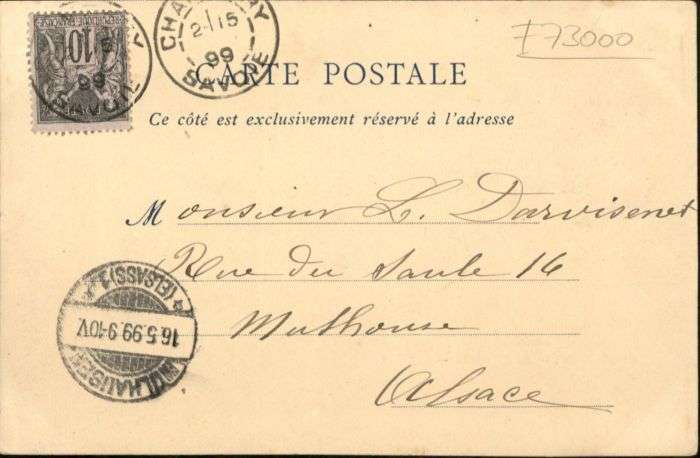 F73000
CHA
2 15
99
SAVOIE
RÉPUBLIQUE FRANÇAISE
10
99
SAVOIE
CARTE POSTALE
Ce côté est exclusivement réservé à l'adresse
Monsieur L. Darvisenet
Rue du Saule 16
Mulhouse
Alsace
MÜLHAUSEN
16.5.99.9-10V.
(ELSASS) 1